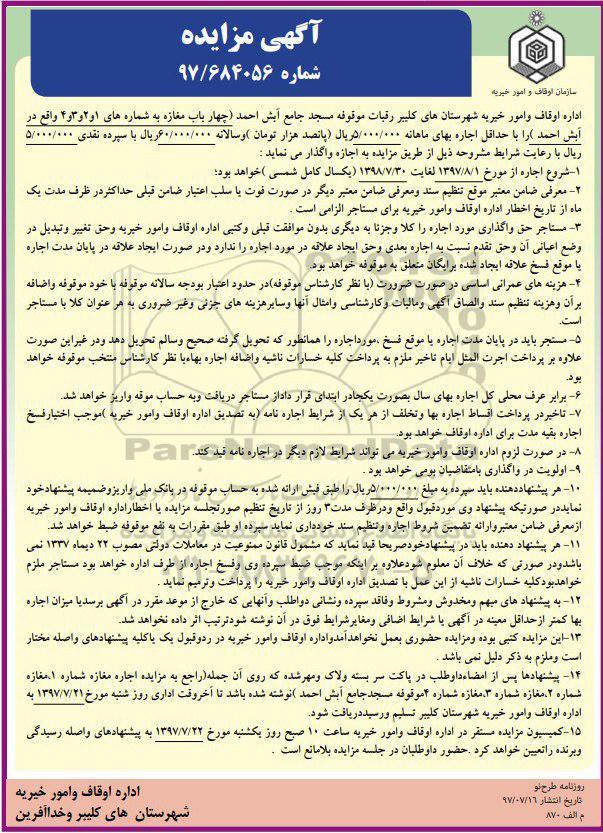 آگهی مزایده
شماره ۹۷/۶۸۴۰۵۶
سازمان اوقاف و امور خیریه
اداره اوقاف وامور خیریه شهرستان های کلیبر رقبات موقوفه مسجد جامع آبش احمد (چهار باب مغازه به شماره های ۱و۲و۳و۴ واقع در
آبش احمد )را با حداقل اجاره بهای ماهانه ۵/۰۰۰/۰۰۰ریال (پانصد هزار تومان )وسالانه ۶۰/۰۰۰/۰۰۰ریال با سپرده نقدی ۵/۰۰۰/۰۰۰
ریال با رعایت شرایط مشروحه ذیل از طریق مزایده به اجازه واگذار می نماید :
۱-شروع اجاره از مورخ ۱۳۹۷/۸/۱ لغایت ۱۳۹۸/۷/۳۰ (یکسال کامل شمسی )خواهد بود؛
۲- معرفی ضامن معتبر موقع تنظیم سند ومعرفی ضامن معتبر دیگر در صورت فوت یا سلب اعتبار ضامن قبلی حداکثردر ظرف مدت یک
ماه از تاریخ اخطار اداره اوقاف وامور خیریه برای مستاجر الزامی است .
۳- مستاجر حق واگذاری مورد اجاره را کلا وجزئا به دیگری بدون موافقت قبلی وکتبی اداره اوقاف وامور خیریه وحق تغییر وتبدیل در
وضع اعیانی آن وحق تقدم نسبت به اجاره بعدی وحق ایجاد علاقه در مورد اجاره را ندارد ودر صورت ایجاد علاقه در پایان مدت اجاره
یا موقع فسخ علاقه ایجاد شده برایگان متعلق به موقوفه خواهد بود.
۴- هزینه های عمرانی اساسی در صورت ضرورت (با نظر کارشناس موقوفه)در حدود اعتبار بودجه سالانه موقوفه با خود موقوفه واضافه
برآن وهزینه تنظیم سند والصاق آگهی ومالیات وکارشناسی وامثال آنها وسایرهزینه های جزئی وغیر ضروری به هر عنوان کلا با مستاجر
است.
۵- مستجر باید در پایان مدت اجاره یا موقع فسخ ،مورداجاره را همانطور که تحویل گرفته صحیح وسالم تحویل دهد ودر غیراین صورت
علاوه بر پرداخت اجرت المثل ایام تاخیر ملزم به پرداخت کلیه خسارات ناشیه واضافه اجاره بهاءبا نظر کارشناس منتخب موقوفه خواهد
بود.
۶- برابر عرف محلی کل اجاره بهای سال بصورت یکجادر ابتدای قرار داداز مستاجر دریافت وبه حساب موقه واریز خواهد شد.
۷- تاخیردر پرداخت اقساط اجاره بها وتخلف از هر یک از شرایط اجاره نامه (به تصدیق اداره اوقاف وامور خیریه )موجب اختیارفسخ
اجاره بقیه مدت برای اداره اوقاف خواهد بود.
۸- در صورت لزوم اداره اوقاف وامور خیریه می تواند شرایط لازم دیگر در اجاره نامه قید کند.
۹- اولویت در واگذاری بامتقاضیان بومی خواهد بود .
۱۰- هر پیشنهاددهنده باید سپرده به مبلغ ۵/۰۰۰/۰۰۰ریال را طبق فیش ارائه شده به حساب موقوفه در بانک ملی واریزوضمیمه پیشنهادخود
نمایددر صورتیکه پیشنهاد وی موردقبول واقع ودرظرف مدت۳ روز از تاریخ تنظیم صورتجلسه مزایده یا اخطاراداره اوقاف وامور خیریه
ازمعرفی ضامن معتبروارائه تضمین شروط اجاره وتنظیم سند خودداری نماید سپرده او طبق مقررات به نفع موقوفه ضبط خواهد شد.
۱۱- هر پیشنهاد دهنده باید در پیشنهادخودصریحا قید نماید که مشمول قانون ممنوعیت در معاملات دولتی مصوب ۲۲ دیماه ۱۳۳۷ نمی
باشدودر صورتی که خلاف آن معلوم شودعلاوه بر اینکه موجب ضبط سپرده وی وفسخ اجاره از طرف اداره خواهد بود مستاجر ملزم
خواهدبودکلیه خسارات ناشیه از این عمل با تصدیق اداره اوقاف وامور خیریه را پرداخت وترمیم نماید .
۱۲- به پیشنهاد های مبهم ومخدوش ومشروط وفاقد سپرده ونشانی دواطلب وآنهایی که خارج از موعد مقرر در آگهی برسدیا میزان اجاره
بها کمتر ازحداقل معینه در آگهی یا شرایط اضافی ومغایرشرایط فوق در آن نوشته شودترتیب اثر داده نخواهد شد.
۱۳-این مزایده کتبی بوده ومزایده حضوری بعمل نخواهدآمدواداره اوقاف وامور خیریه در ردوقبول یک یاکلیه پیشنهادهای واصله مختار
است وملزم به ذکر دلیل نمی باشد .
۱۴- پیشنهادها پس از امضاءداوطلب در پاکت سر بسته ولاک ومهرشده که روی آن جمله(راجع به مزایده اجاره مغازه شماره ۱،مغازه
شماره ۲،مغازه شماره ۳،مغازه شماره ۴موقوفه مسجدجامع آبش احمد )نوشته شده باشد تا آخروقت اداری روز شنبه مورخ۱۳۹۷/۷/۲۱ به
اداره اوقاف وامور خیریه شهرستان کلیبر تسلیم ورسیددریافت شود.
۱۵-کمیسیون مزایده مستقر در اداره اوقاف وامور خیریه ساعت ۱۰ صبح روز یکشنبه مورخ ۱۳۹۷/۷/۲۲ به پیشنهادهای واصله رسیدگی
وبرنده راتعیین خواهد کرد .حضور داوطلبان در جلسه مزایده بلامانع است .
ParsNamadData
روزنامه طرح‌نو
تاریخ انتشار ۹۷/۰۷/۱۶
م الف ۸۷۰
اداره اوقاف وامور خیریه
شهرستان های کلیبر وخداآفرین